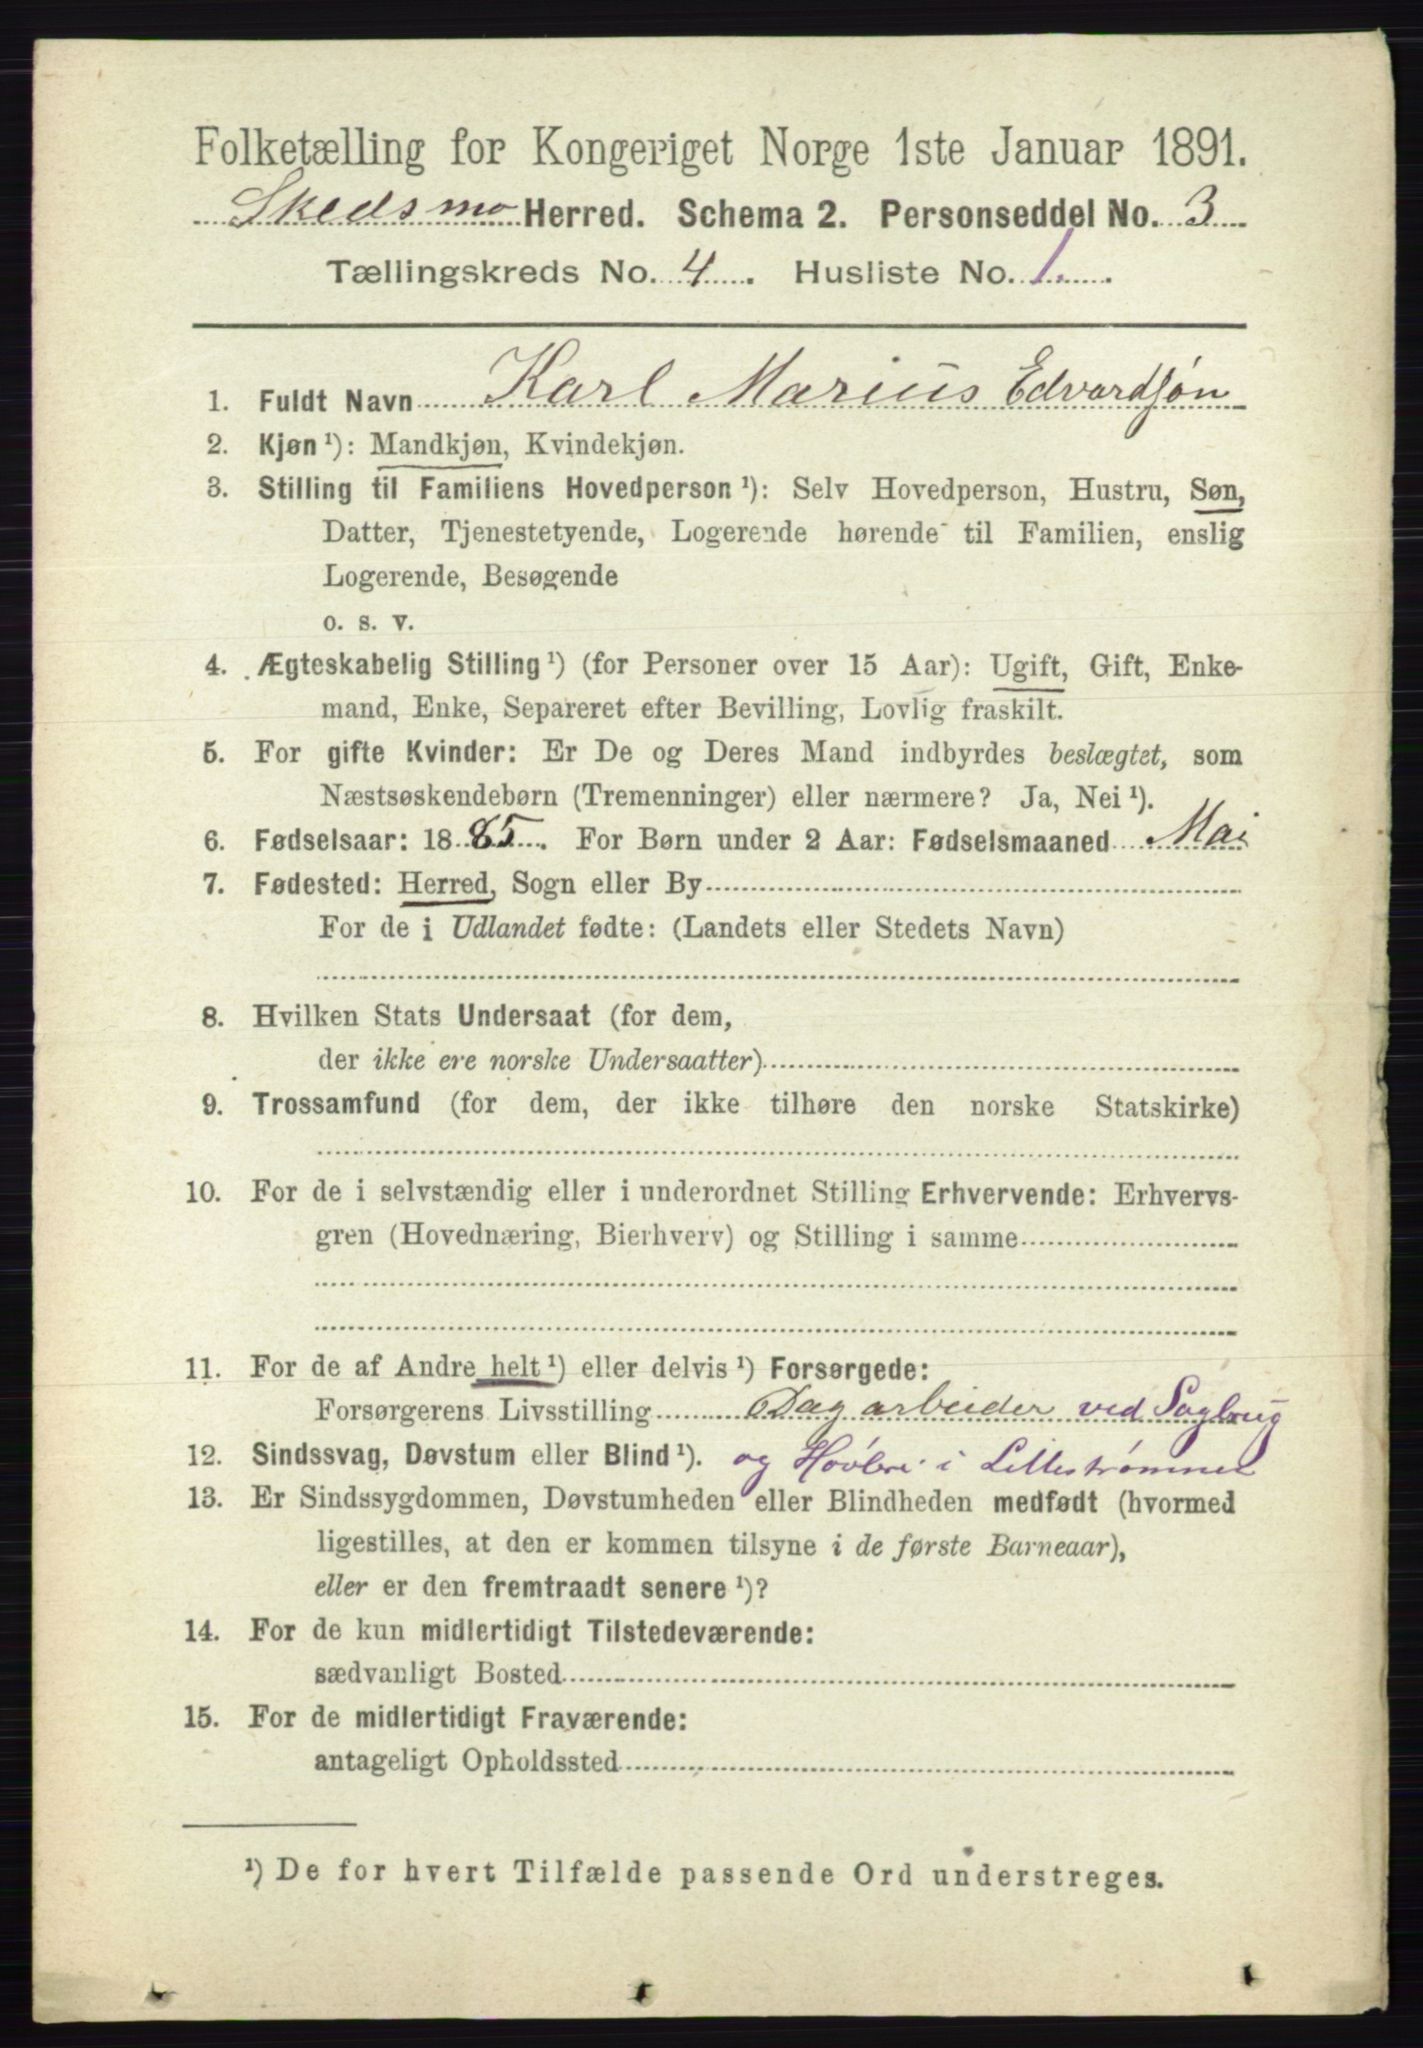 Folketælling for Kongeriget Norge 1ste Januar 1891.
Skedsmo Herred. Schema 2. Personseddel No. 3
Tællingskreds No. 4. Husliste No. 1.
1. Fuldt Navn Karl Marius Edvardsøn
2. Kjøn ¹): Mandkjøn, Kvindekjøn.
3. Stilling til Familiens Hovedperson ¹): Selv Hovedperson, Hustru, Søn,
Datter, Tjenestetyende, Logerende hørende til Familien, enslig
Logerende, Besøgende
o. s. v.
4. Ægteskabelig Stilling ¹) (for Personer over 15 Aar): Ugift, Gift, Enke-
mand, Enke, Separeret efter Bevilling, Lovlig fraskilt.
5. For gifte Kvinder: Er De og Deres Mand indbyrdes beslægtet, som
Næstsøskendebørn (Tremenninger) eller nærmere? Ja, Nei ¹).
6. Fødselsaar: 1885. For Børn under 2 Aar: Fødselsmaaned Mai
7. Fødested: Herred, Sogn eller By
For de i Udlandet fødte: (Landets eller Stedets Navn)
8. Hvilken Stats Undersaat (for dem,
der ikke ere norske Undersaatter)
9. Trossamfund (for dem, der ikke tilhøre den norske Statskirke)
10. For de i selvstændig eller i underordnet Stilling Erhvervende: Erhvervs-
gren (Hovednæring, Bierhverv) og Stilling i samme
11. For de af Andre helt ¹) eller delvis ¹) Forsørgede:
Forsørgerens Livsstilling Dagarbeider ved Sagbrug
12. Sindssvag, Døvstum eller Blind ¹). og Høvleri i Lillestrømmen
13. Er Sindssygdommen, Døvstumheden eller Blindheden medfødt (hvormed
ligestilles, at den er kommen tilsyne i de første Barneaar),
eller er den fremtraadt senere ¹)?
14. For de kun midlertidigt Tilstedeværende:
sædvanligt Bosted
15. For de midlertidigt Fraværende:
antageligt Opholdssted
¹) De for hvert Tilfælde passende Ord understreges.